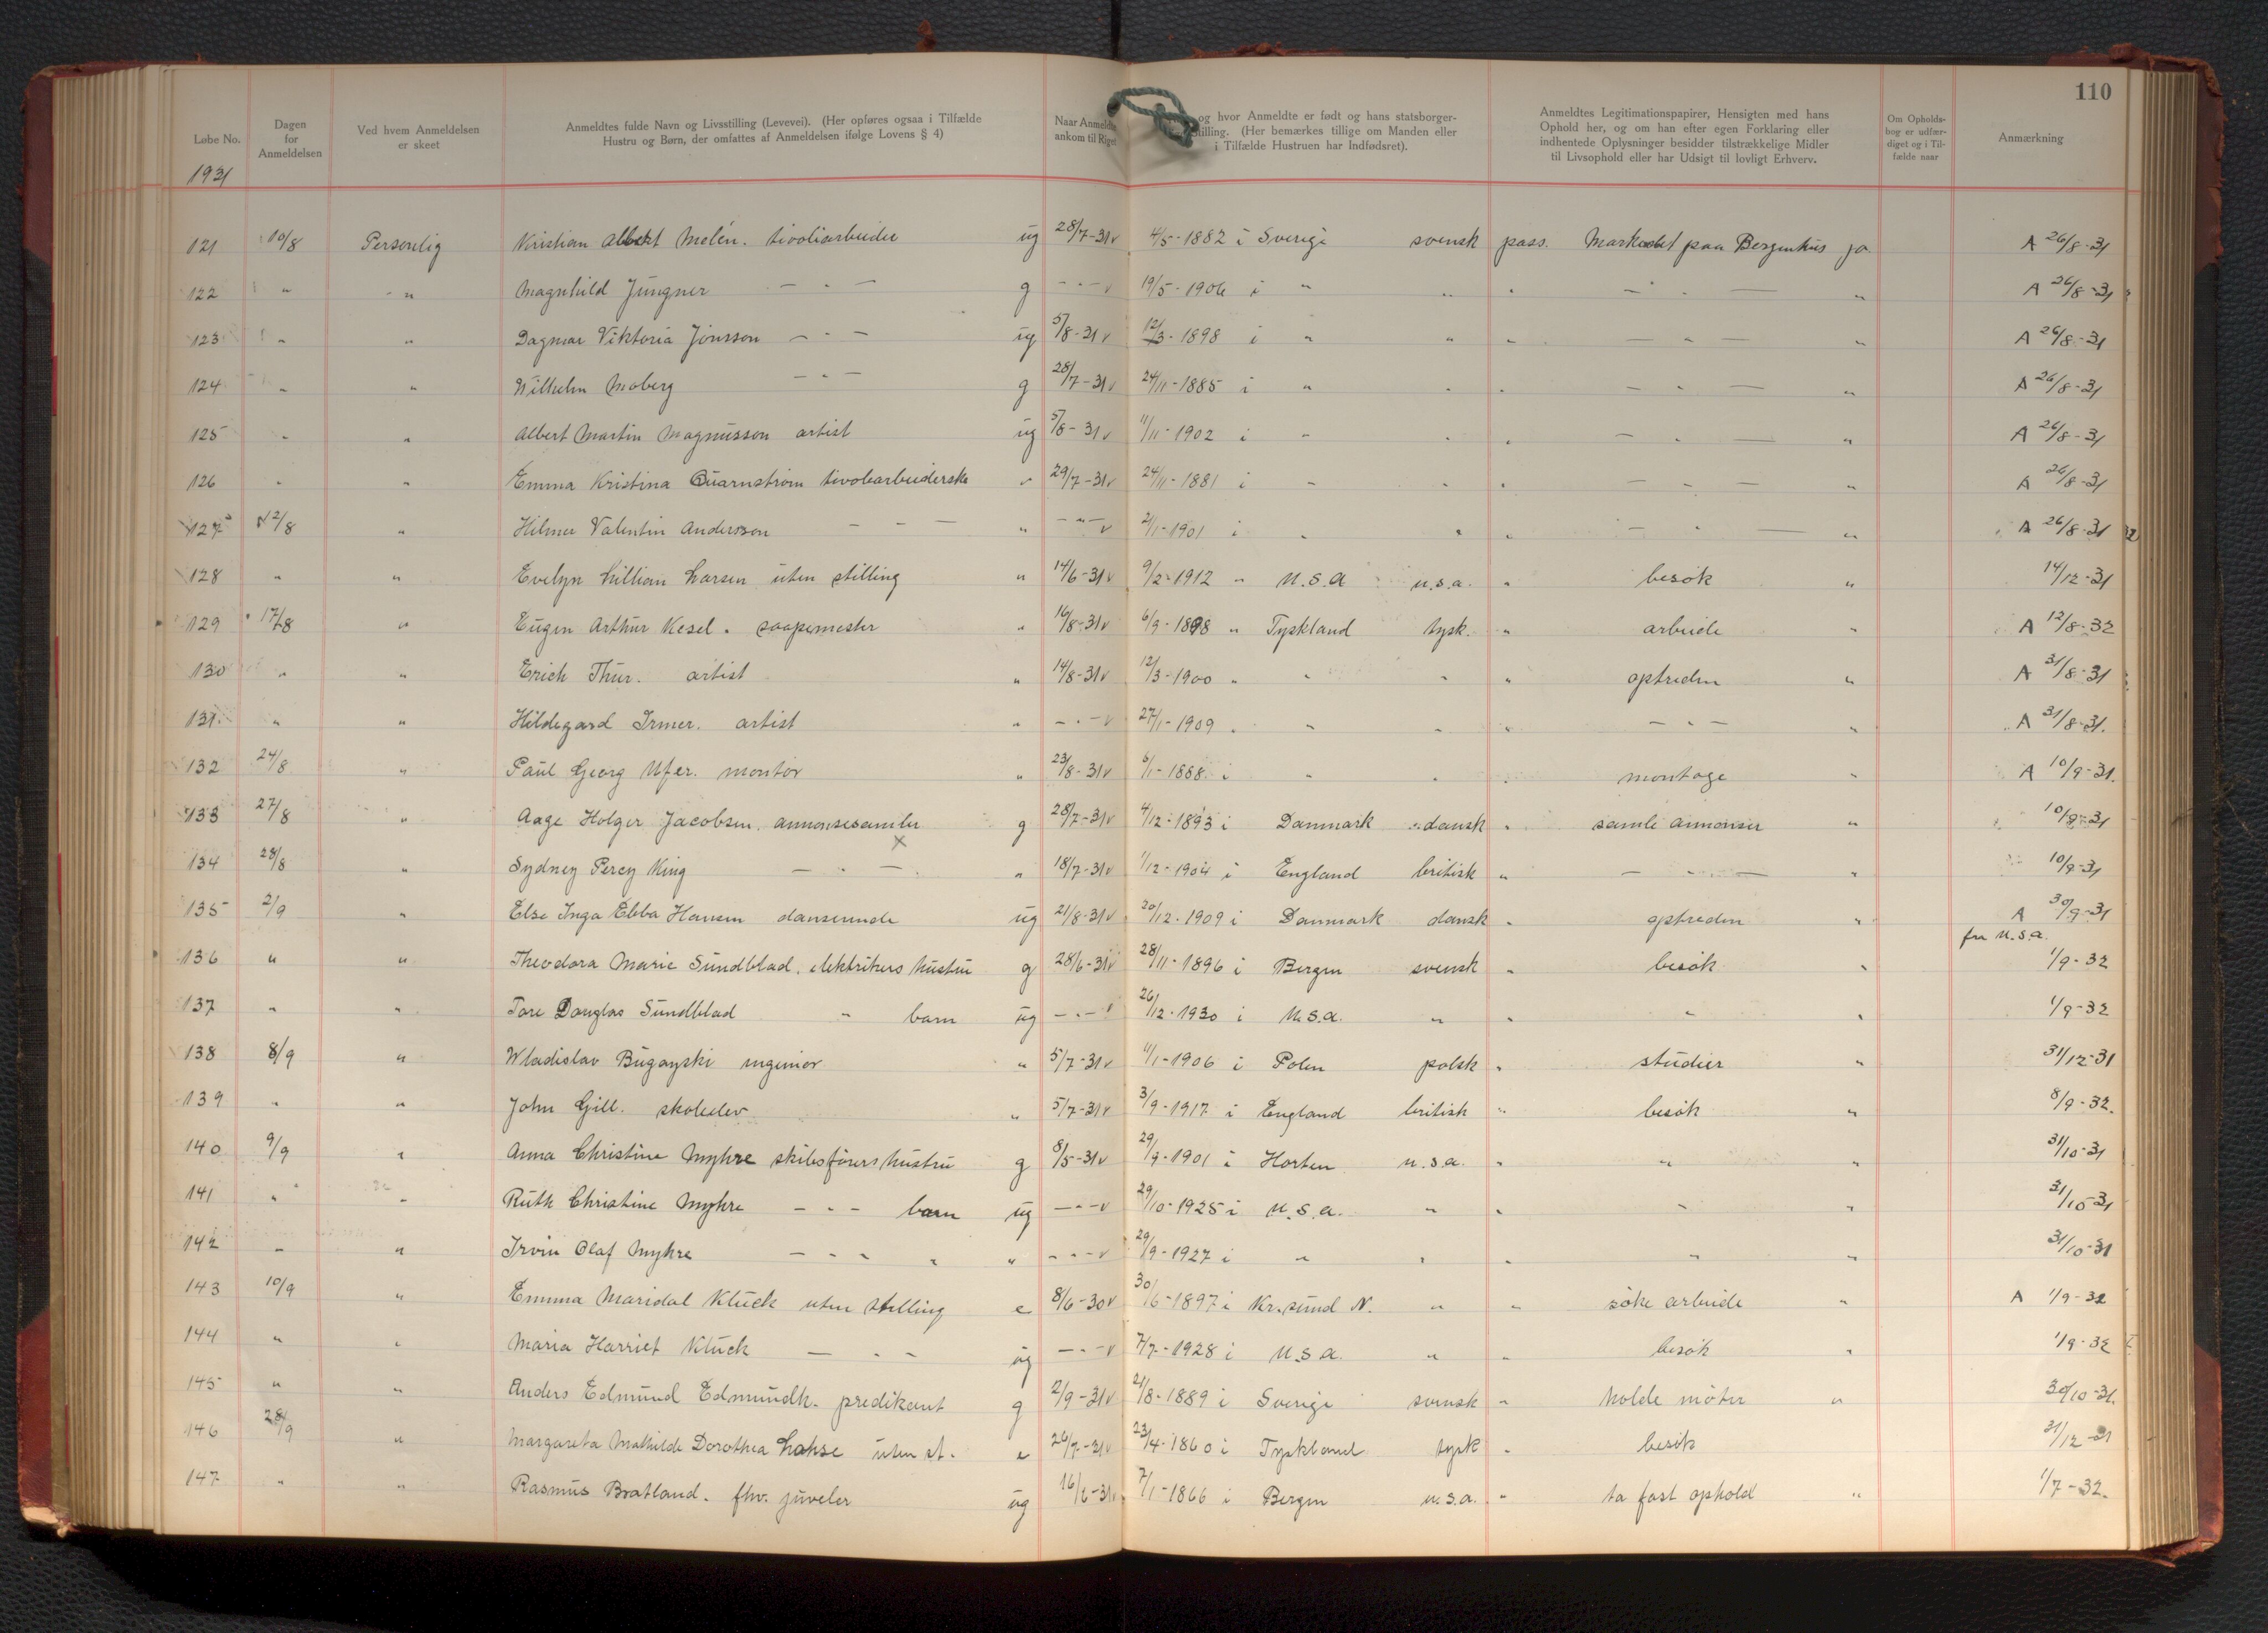 110
Løbe No.
Dagen for Anmeldelsen
Ved hvem Anmeldelsen er skeet
Anmeldtes fulde Navn og Livsstilling (Levevei). (Her opføres ogsaa i Tilfælde Hustru og Børn, der omfattes af Anmeldelsen ifølge Lovens § 4)
Naar Anmeldte ankom til Riget
og hvor Anmeldte er født og hans statsborger- stilling. (Her bemærkes tillige om Manden eller i Tilfælde Hustruen har Indfødsret).
Anmeldtes Legitimationspapirer, Hensigten med hans Ophold her, og om han efter egen Forklaring eller indhentede Oplysninger besidder tilstrækkelige Midler til Livsophold eller har Udsigt til lovligt Erhverv.
Om Opholds- bog er udfær- diget og i Til- fælde naar
Anmærkning
1931
121 10/8 Personlig Kristian Albert Melén. tivoliarbeider ug 28/7-31 v 4/5-1882 i Sverige svensk pass. Markedet paa Bergenhus ja A 26/8-31
122 " " Magnhild Jungner — " — g — " — v 19/5-1906 i " " " — " — " A 26/8-31
123 " " Dagmar Viktoria Jonsson — " — ug 5/8-31 v 12/3-1898 i " " " — " — " A 26/8-31
124 " " Wilhelm Moberg — " — g 28/7-31 v 24/11-1885 i " " " — " — " A 26/8-31
125 " " Albert Martin Magnusson artist ug 5/8-31 v 11/11-1902 i " " " — " — " A 26/8-31
126 " " Emma Kristina Quarnstrom tivoliarbeiderske " 29/7-31 v 24/11-1881 i " " " — " — " A 26/8-31
127 12/8 " Hilmer Valentin Andersson — " — " — " — v 2/1-1901 i " " " — " — " A 26/8-31
128 " " Evelyn Lillian Larsen uten stilling " 14/6-31 v 9/2-1912 " U.S.A u.s.a. " besøk " 14/12-31
129 17/8 " Eugen Arthur Kesel. saapemester " 16/8-31 v 6/9-1898 " Tyskland tysk. " arbeide " A 12/8-32
130 " " Erich Thur. artist " 14/8-31 v 12/3-1900 " " " " optreden " A 31/8-31
131 " " Hildegard Irmer. artist " — " — v 27/1-1909 " " " " — " — " A 31/8-31.
132 24/8 " Paul Georg Ufer. montør " 23/8-31 v 6/1-1888 i " " " montage " A 10/9-31.
133 27/8 " Aage Holger Jacobsen. annonsesamler g 28/7-31 v 4/12-1893 i Danmark dansk " samle annonser " 10/9-31
134 28/8 " Sydney Percy King — " — " 18/7-31 v 1/12-1904 i England britisk " — " — " 10/9-31
135 2/9 " Else Inga Ebba Hansen danserinde ug 21/8-31 v 20/12-1909 i Danmark dansk " optreden " A 30/9-31
fra U.S.A.
136 " " Theodora Marie Sundblad. elektrikers hustru g 28/6-31 v 28/11-1896 i Bergen svensk " besøk " 1/9-32
137 " " Tore Douglas Sundblad " barn ug — " — v 26/12-1930 i U.S.A. " " " " 1/9-32
138 8/9 " Wladislav Bugayski ingeniør " 5/7-31 v 11/1-1906 i Polen polsk " studier " 31/12-31
139 " " John Gill. skoleelev " 5/7-31 v 3/9-1917 i England britisk " besøk " 8/9-32.
140 9/9 " Anna Christine Myhre skibsførers hustru g 8/5-31 v 29/9-1901 i Horten u.s.a. " " " 31/10-31
141 " " Ruth Christine Myhre — " — barn ug — " — v 29/10-1925 i U.S.A. " " " " 31/10-31
142 " " Irvin Olaf Myhre — " — " " — " — v 29/9-1927 i " " " " " 31/10-31
143 10/9 " Emma Maridal Kluck uten stilling e 8/6-30 v 30/6-1897 i Kr.sund N. " " søke arbeide " A 1/9-32
144 " " Maria Harriet Kluck — " — ug — " — v 7/7-1928 i U.S.A. " " besøk " 1/9-32
145 " " Anders Edmund Edmundh. predikant g 2/9-31 v 21/8-1889 i Sverige svensk " holde møter " 30/10-31.
146 28/9 " Margareta Mathilde Dorothea Lohse uten st. e 26/7-31 v 23/4-1860 i Tyskland tysk " besøk 31/12-31
147 " " Rasmus Bratland. fhv. juveler ug 16/6-31 v 7/1-1866 i Bergen u.s.a. " ta fast ophold " 1/7-32.